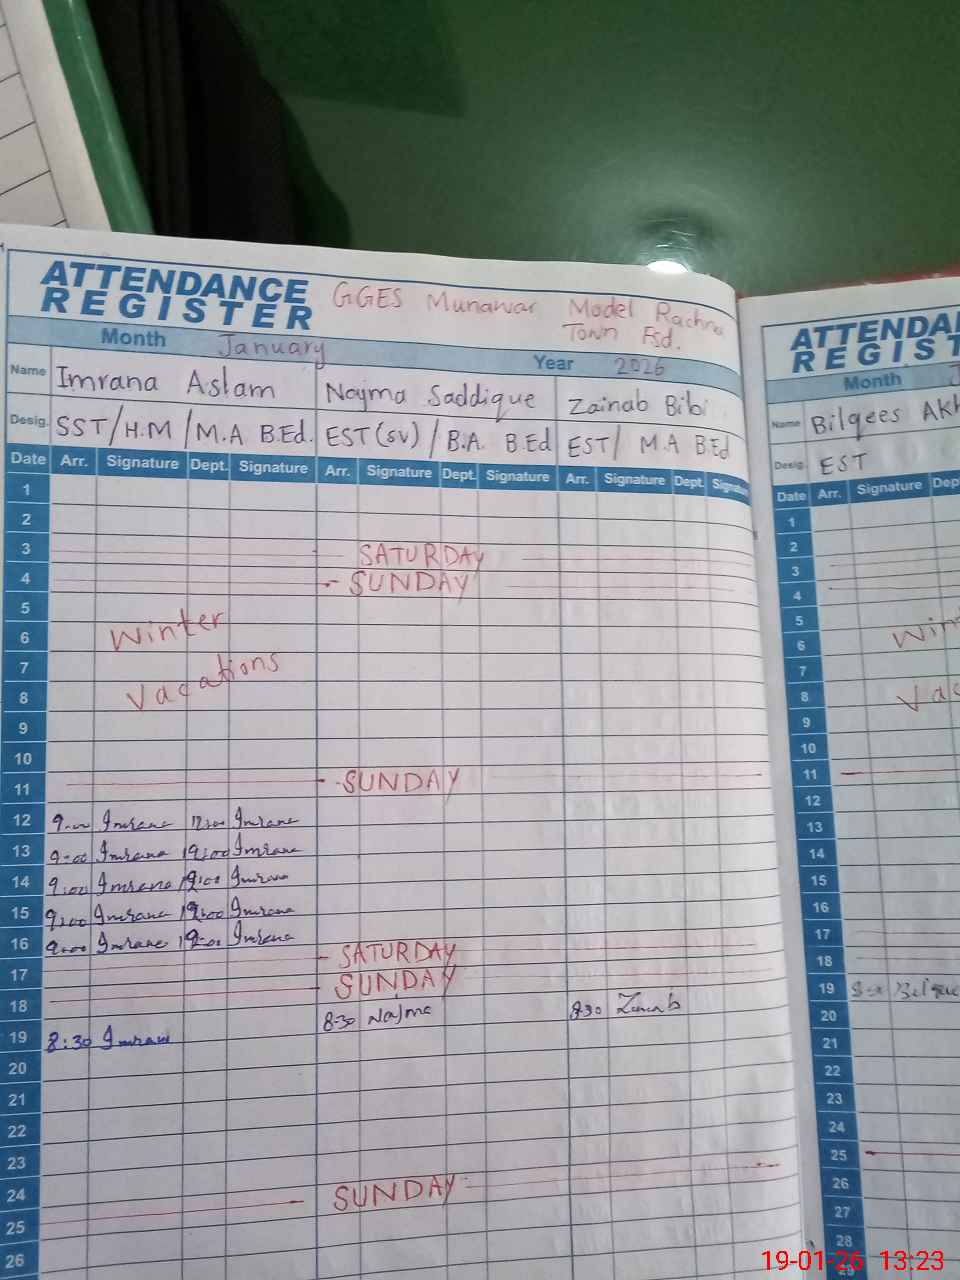 ATTENDANCE REGISTER
GGES Munawar Model Rachna Town Fsd.
Month January Year 2026
Name Imrana Aslam Najma Saddique Zainab Bibi
Desig. SST/H.M/M.A B.Ed. EST(SV)/B.A. B.Ed EST/ M.A B.Ed
Date Arr. Signature Dept. Signature Arr. Signature Dept. Signature Arr. Signature Dept.
1
2
3 SATURDAY
4 SUNDAY
5
6 Winter
7 Vacations
8
9
10
11 SUNDAY
12 9:00 Imrana 12:00 Imrana
13 9:00 Imrana 12:00 Imrana
14 9:00 Imrana 12:00 Imrana
15 9:00 Imrana 12:00 Imrana
16 9:00 Imrana 12:00 Imrana
17 SATURDAY
18 SUNDAY
19 8:30 Imrana 8:30 Najma 8:30 Zainab
20
21
22
23
24
25 SUNDAY
26
ATTENDA
REGIST
Month J
Name Bilqees Akh
Desig. EST
Date Arr. Signature Dep
1
2
3
4
5
6 Wint
7
8 Vac
9
10
11
12
13
14
15
16
17
18
19
20
21
22
23
24
25
26
27
28
29
19-01-26 13:23